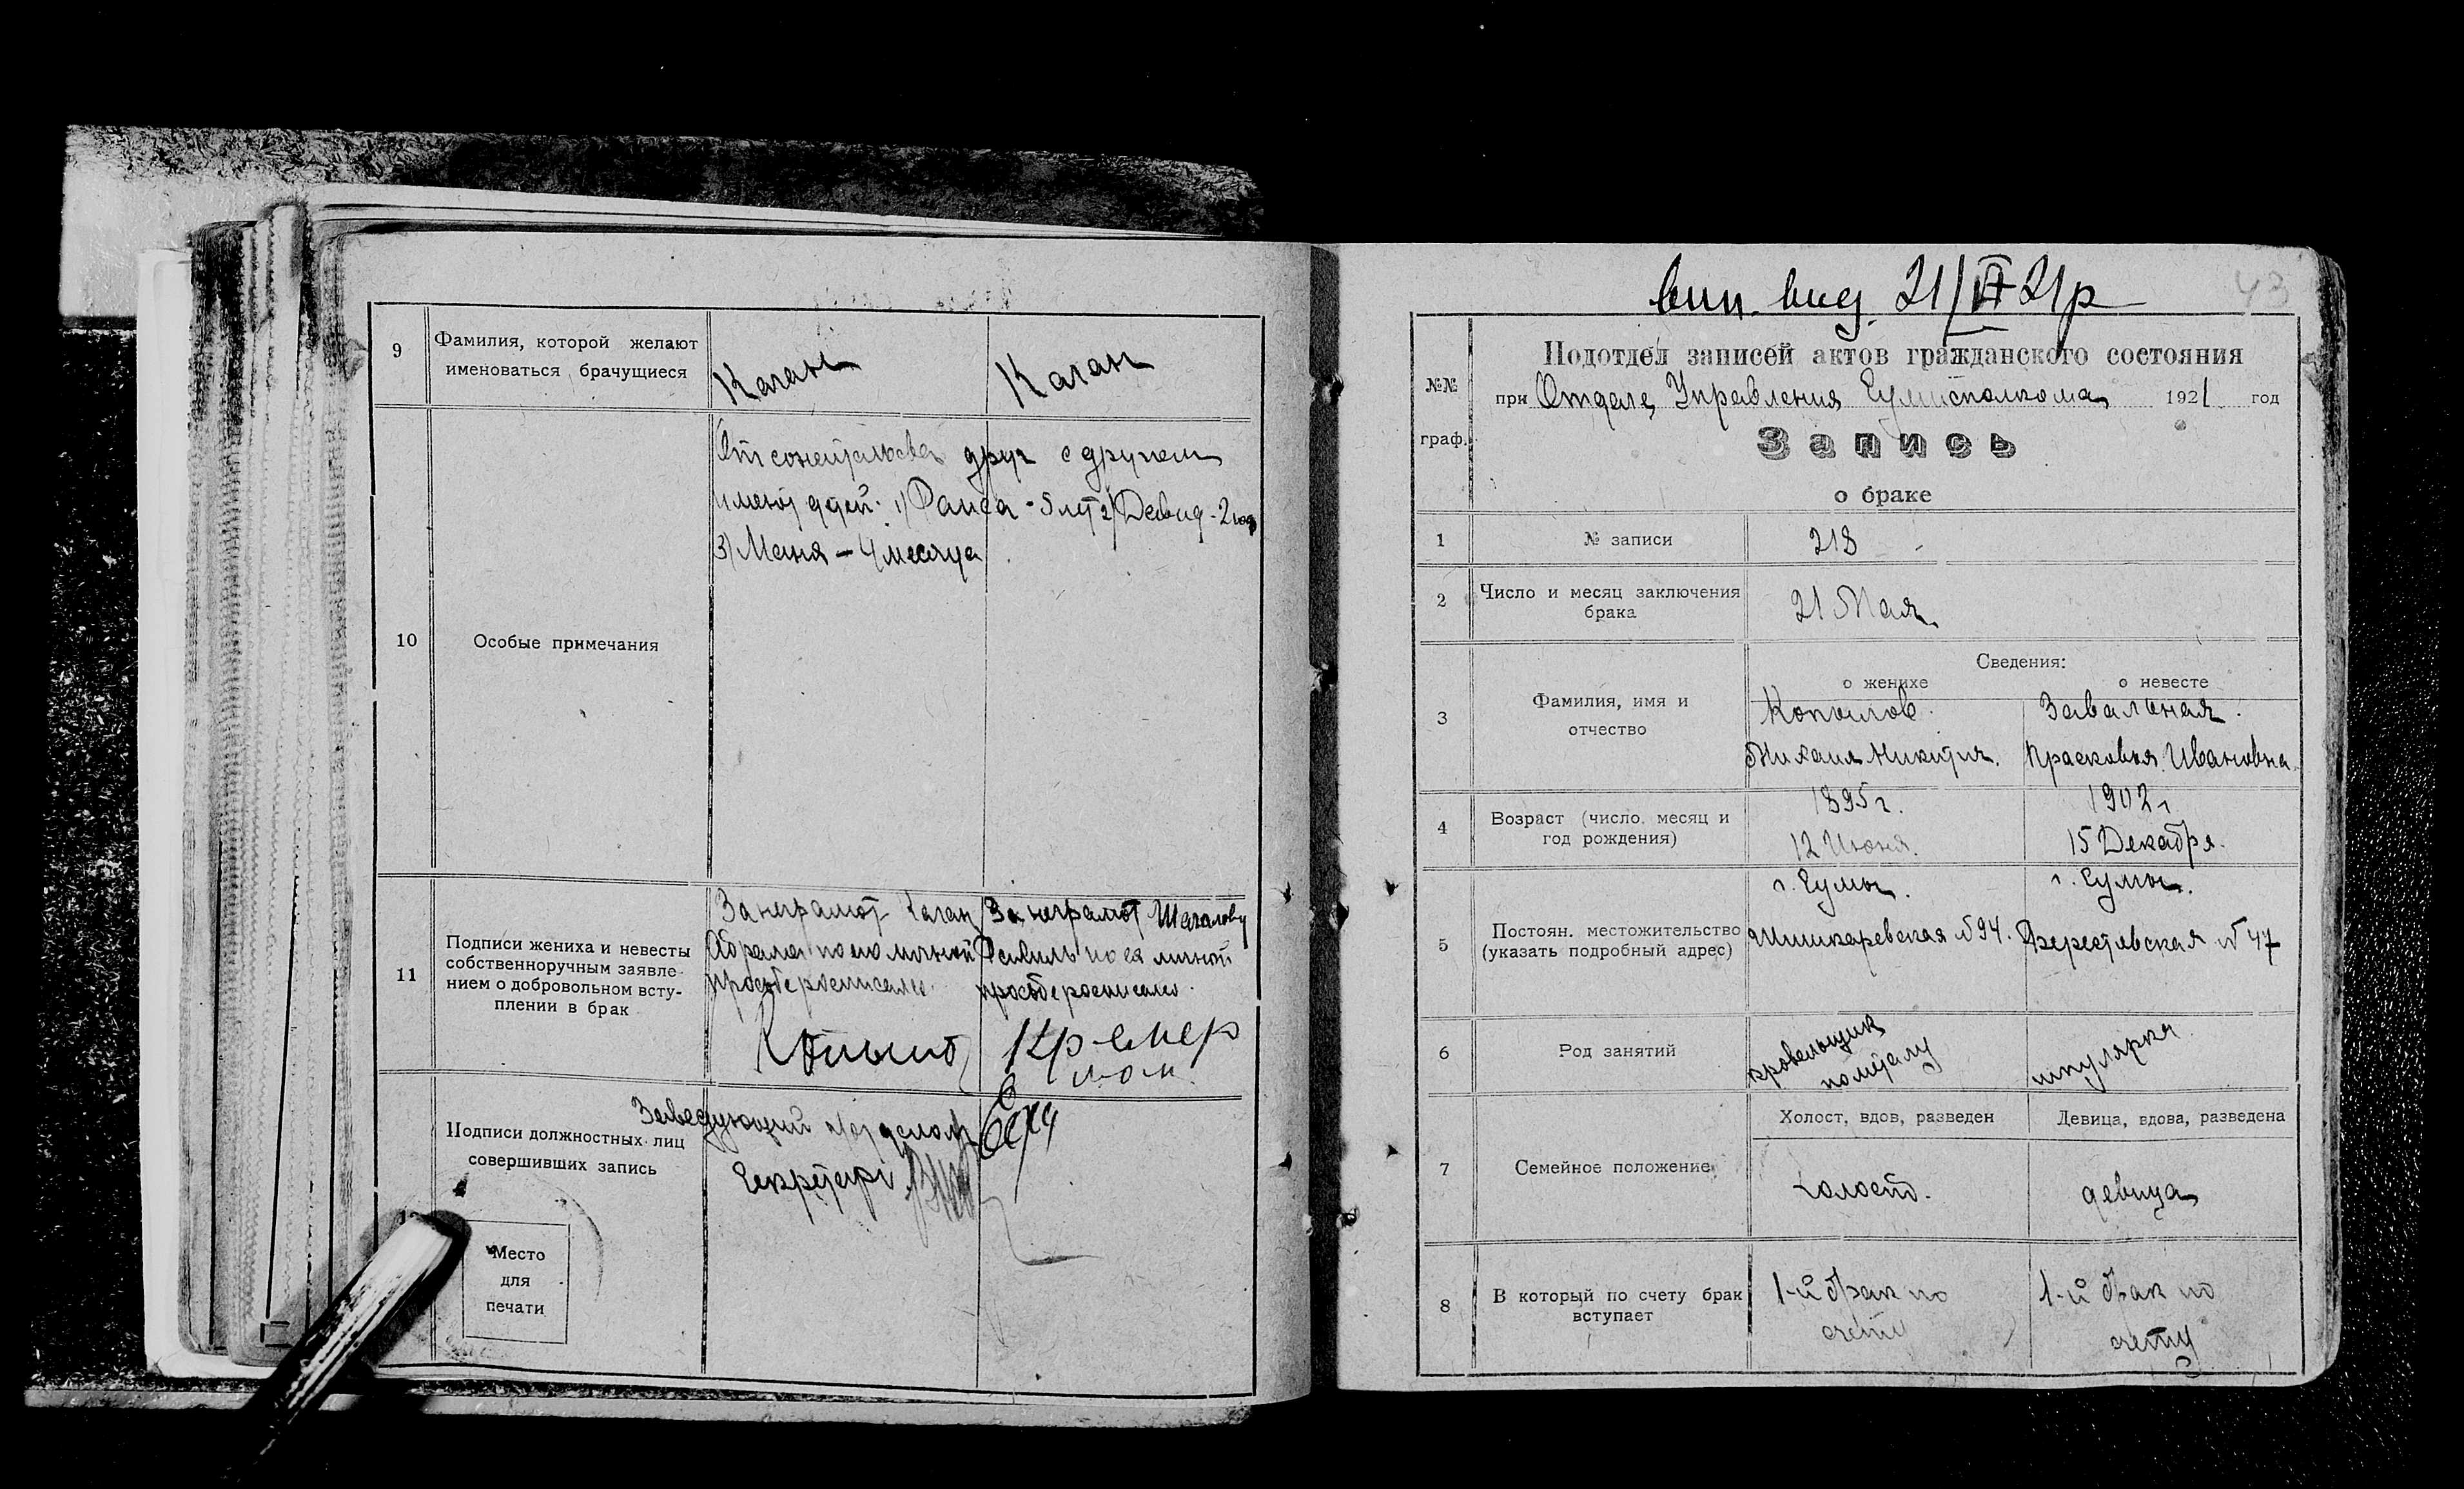 9
Фамилия, которой желают
именоваться брачущиеся
Каган
Каган
10
Особые примечания
От сожительства друг с другом
имеют детей: 1) Раиса - 5 лет 2) Давид - 2 года
3) Маня - 4 месяца
11
Подписи жениха и невесты
собственноручным заявле-
нием о добровольном всту-
плении в брак
За неграмот Каган
Абрама по его личной
просьбе росписался
За неграмот Шагалову
по ея личной
просьбе росписался
Кремер
Подписи должностных лиц
совершивших запись
Заведующий
Секретарь
Место
для
печати
43
вип. вид. 21/VI 21р
№№
граф.
Подотдел записей актов гражданского состояния
при Отделе Управления Сумисполкома 1921 год
Запись
о браке
1
№ записи
218
2
Число и месяц заключения
брака
21 Мая
Сведения:
о женихе
о невесте
3
Фамилия, имя и
отчество
Копылов
Михаил Никитич.
Завальная.
Прасковья Ивановна
4
Возраст (число, месяц и
год рождения)
1895 г.
12 Июня.
1902 г.
15 Декабря.
5
Постоян. местожительство
(указать подробный адрес)
г. Сумы.
Шишкаревская №94.
г. Сумы.
№ 47
6
Род занятий
кровельщик
по металу
шпулярка
7
Семейное положение
Холост, вдов, разведен
Девица, вдова, разведена
холост.
девица
8
В который по счету брак
вступает
1-й брак по
счету
1-й брак по
счету